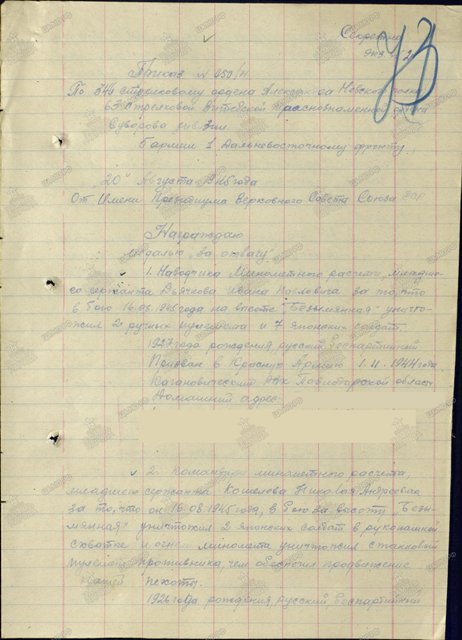 Секретно
Экз. № 2
Приказ № 050/н
По 346 стрелковому ордена Александра Невского полку
63 стрелковой Витебской Краснознаменной ордена
Суворова дивизии
5 армии 1 Дальневосточному фронту.
"20" Августа 1945 года
От Имени Президиума Верховного Совета Союза ССР
Награждаю
медалью "за отвагу"
1. Наводчика Минометного расчета, младше-
го сержанта Дьячкова Ивана Павловича за то, что
в бою 16.08.1945 года на высоте "Безымянная" уничто-
жил 2 ручных пулемета и 7 японских солдат.
1927 года рождения русский беспартийный
Призван в Красную Армию 1.11.1944 года
Кагановическим РВК Павлодарской области
Домашний адрес:
2. Командира минометного расчета,
младшего сержанта Кошелева Николая Андреевича
за то, что он 16.08.1945 года, в бою за высоту Безы-
мянная уничтожил 2 японских солдат в рукопашной
схватке и огнем миномета уничтожил станковый
пулемет противника чем обеспечил продвижение
нашей пехоты.
1926 года рождения русский беспартийный